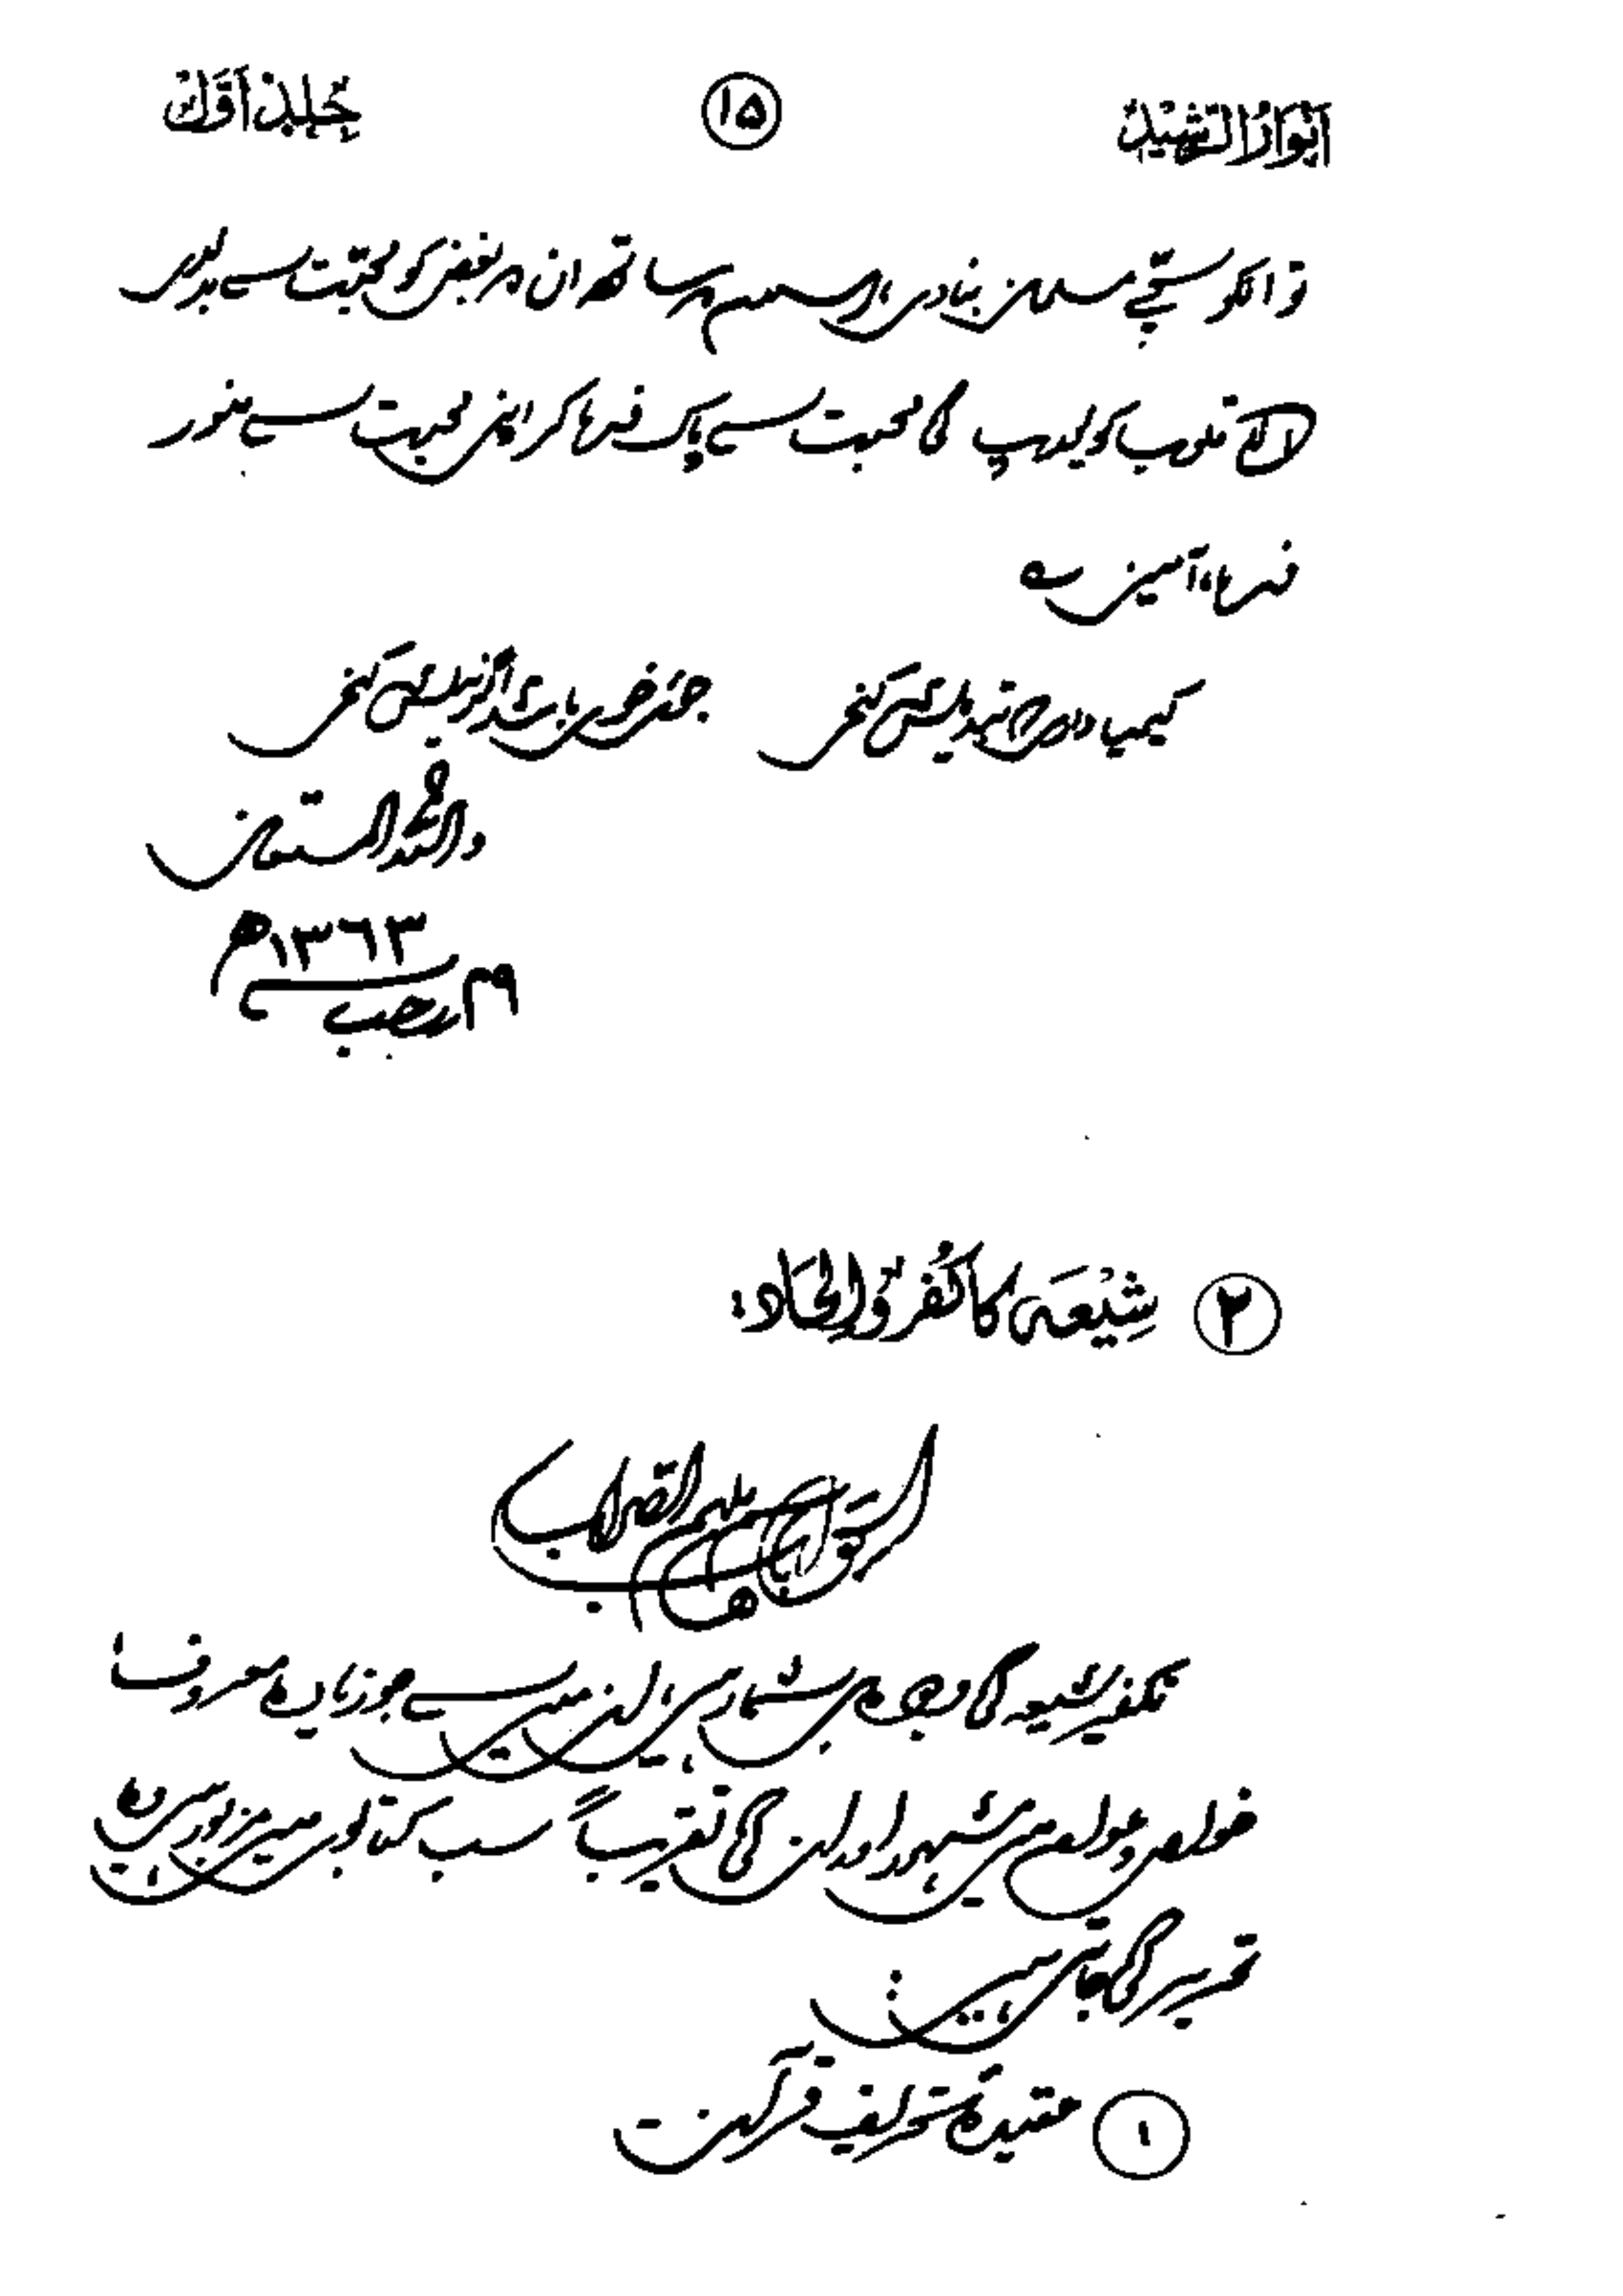 انوار الرشید ۱۵ جلد اول
تو انکو سچے مسلمان بنا دیں، اسلام کے ساتھ ان کے بغض کو محبت سے بدل
کے قلوب کو یورپ کی محبت سے پاک فرما کر اپنی محبت سے منور
فرما، آمین۔
کیمیا داری تبدیلش می کنی
جوئے خوں باشد اگر نیلش می کنی
واللہ المستعان
۱۳۶۳ھ
۲۹ رجب
۲ شیعہ کا کفر و الحاد:
الجواب باسم ملہم الصواب
تکفیر شیعہ کی وجوہ بے شمار ہیں، ان میں سے جو زیادہ معروف،
خواص و عوام میں مشہور اور ان کی تقریباً سب کتابوں میں مزبور ہیں وہ
تحریر کی جاتی ہیں:
۱ عقیدۂ تحریف قرآن